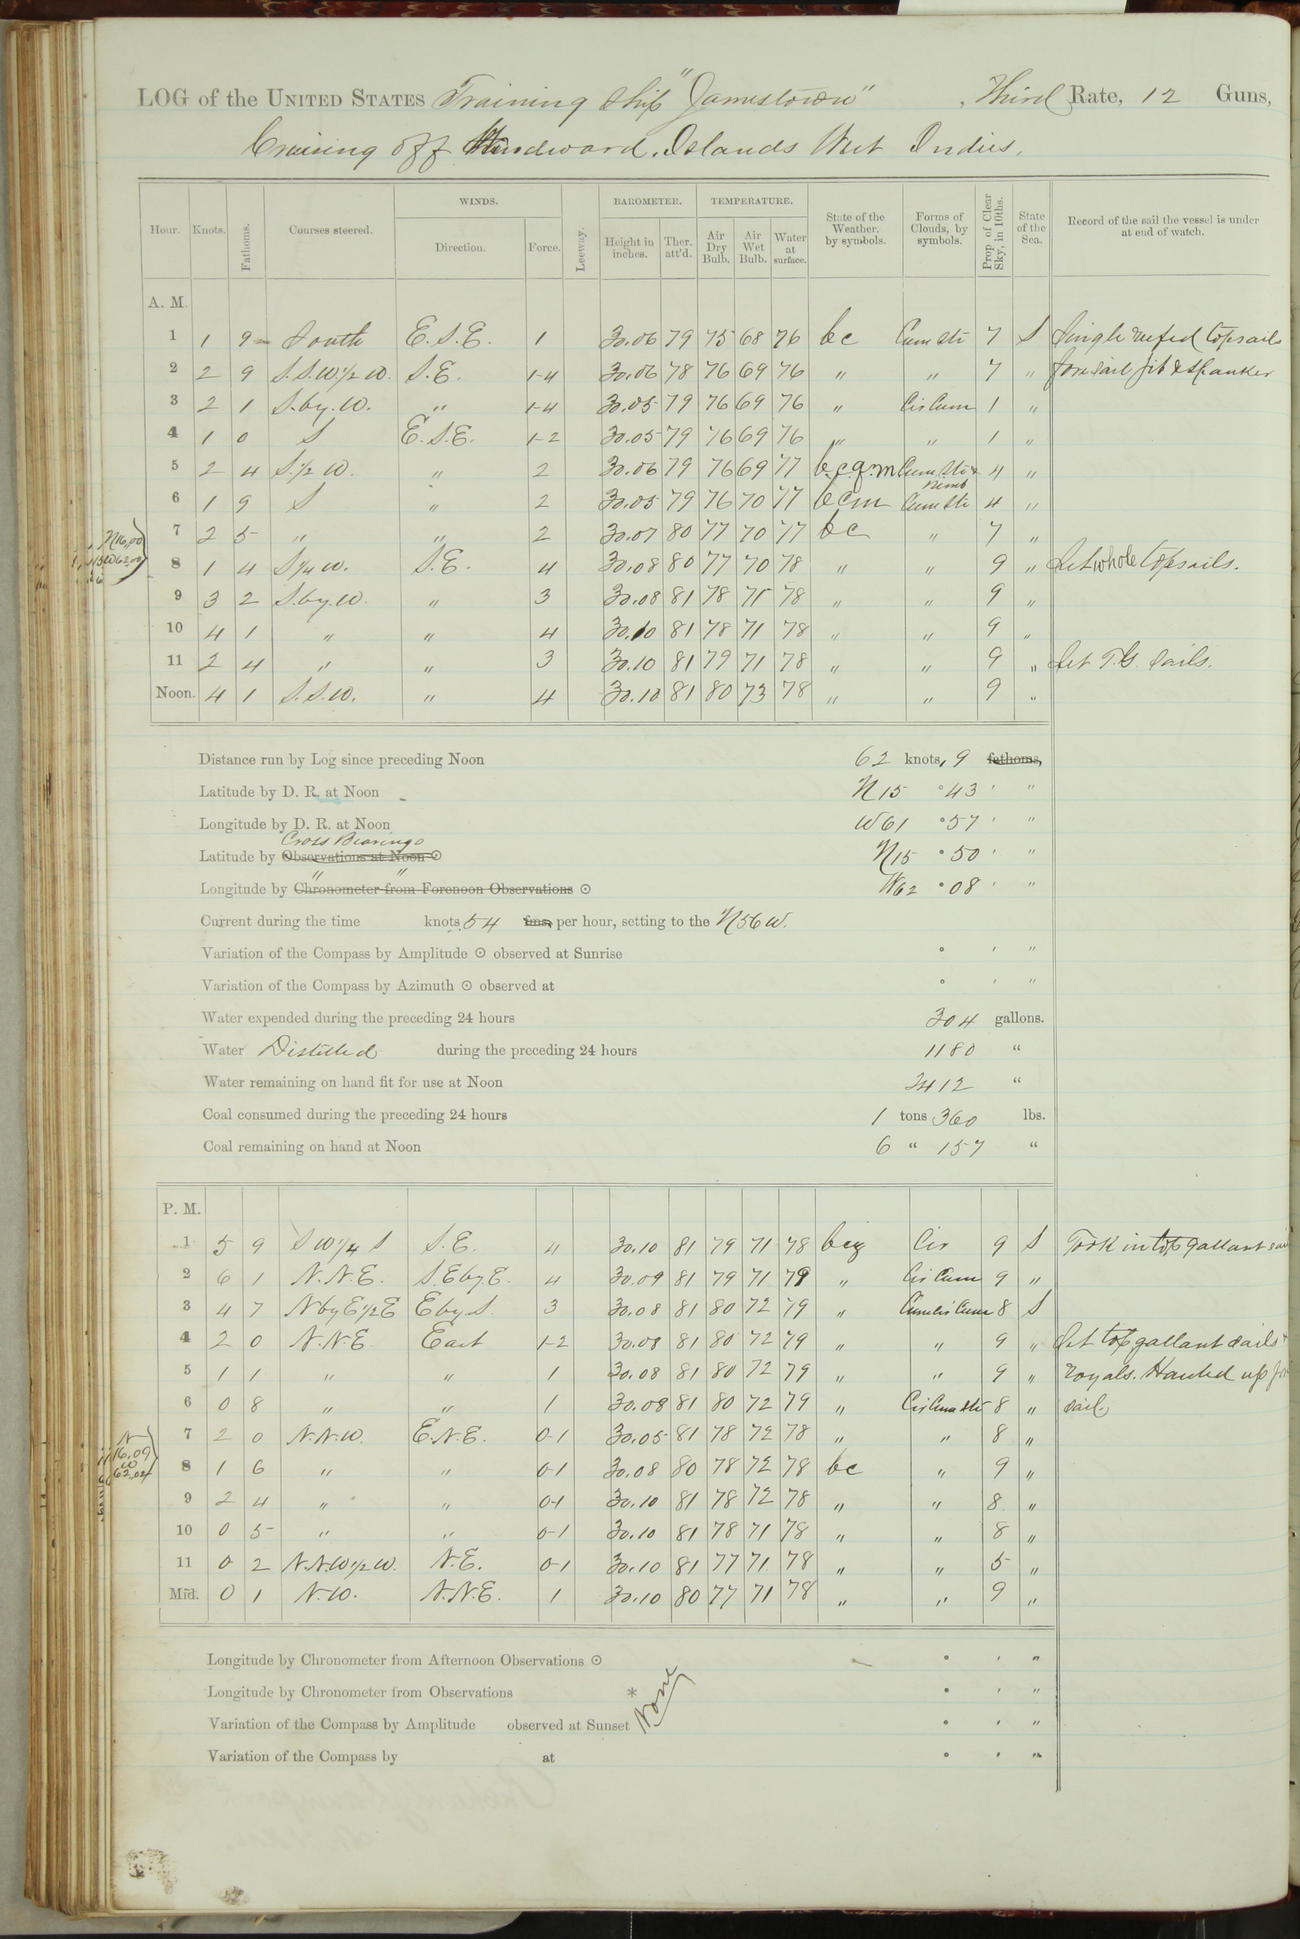 LOG of the UNITED STATES Training Ship "Jamestown", Third Rate, 12 Guns,
Cruising off Windward Islands West Indies.
WINDS. BAROMETER. TEMPERATURE.
Hour. Knots. Fathoms. Courses steered. Direction. Force. Leeway. Height in inches. Ther. att'd. Air Dry Bulb. Air Wet Bulb. Water at surface. State of the Weather, by symbols. Forms of Clouds, by symbols. Prop. of Clear Sky, in 10ths. State of the Sea. Record of the sail the vessel is under at end of watch.
A. M.
1 1 9 South E.S.E. 1 30.06 79 75 68 76 bc Cum Str 7 S Single reefed topsails
2 2 9 S.S.W.1/2 W. S.E. 1-4 30.06 78 76 69 76 " " 7 " foresail jib & spanker
3 2 1 S.by.W. " 1-4 30.05 79 76 69 76 " Cir Cum 1 "
4 1 0 S E.S.E. 1-2 30.05 79 76 69 76 " " 1 "
5 2 4 S.1/2 W. " 2 30.06 79 76 69 77 b.c.q.m Cum Str & Nimb 4 "
6 1 9 S " 2 30.05 79 76 70 77 bcm Cum Str 4 "
7 2 5 " " 2 30.07 80 77 70 77 bc " 7 "
8 1 4 S1/4 W. S.E. 4 30.08 80 77 70 78 " " 9 " Set whole topsails.
9 3 2 S.by.W. " 3 30.08 81 78 71 78 " " 9 "
10 4 1 " " 4 30.10 81 78 71 78 " " 9 "
11 2 4 " " 3 30.10 81 79 71 78 " " 9 " Set T.G. Sails.
Noon. 4 1 S.S.W. " 4 30.10 81 80 73 78 " " 9 "
Distance run by Log since preceding Noon 62 knots, 9 fathoms,
Latitude by D. R. at Noon N 15 ° 43 ' "
Longitude by D. R. at Noon W 61 ° 57 ' "
Cross Bearings
Latitude by Observations at Noon ⊙ N 15 ° 50 ' "
" "
Longitude by Chronometer from Forenoon Observations ⊙ W 62 ° 08 ' "
Current during the time knots .54 fms. per hour, setting to the N 56 W.
Variation of the Compass by Amplitude ⊙ observed at Sunrise ° ' "
Variation of the Compass by Azimuth ⊙ observed at ° ' "
Water expended during the preceding 24 hours 304 gallons.
Water Distilled during the preceding 24 hours 1180 "
Water remaining on hand fit for use at Noon 3412 "
Coal consumed during the preceding 24 hours 1 tons 360 lbs.
Coal remaining on hand at Noon 6 " 157 "
P. M.
1 5 9 S W 1/4 S S.E. 4 30.10 81 79 71 78 Cir 9 S Took in top gallant sails
2 6 1 N.N.E. S.E by.E. 4 30.09 81 79 71 79 " Cir Cum 9 "
3 4 7 N by E 1/2 E E by S. 3 30.08 81 80 72 79 " Cum Cir Cum 8 S
4 2 0 N.N.E East 1-2 30.08 81 80 72 79 " " 9 " Set top gallant sails &
5 1 1 " " 1 30.08 81 80 72 79 " " 9 " royals. Hauled up fore
6 0 8 " " 1 30.08 81 80 72 79 " Cir Cum Str 8 " sail.
7 2 0 N.N.W. E.N.E. 0-1 30.05 81 78 72 78 " " 8 "
N 16.09 W 62.04
8 1 6 " " 0-1 30.08 80 78 72 78 bc " 9 "
9 2 4 " " 0-1 30.10 81 78 72 78 " " 8 "
10 0 5 " " 0-1 30.10 81 78 71 78 " " 8 "
11 0 2 N.N.W 1/2 W. N.E. 0-1 30.10 81 77 71 78 " " 5 "
Mid. 0 1 N.W. N.N.E. 1 30.10 80 77 71 78 " " 9 "
Longitude by Chronometer from Afternoon Observations ⊙ ° ' "
Longitude by Chronometer from Observations * ° ' "
None
Variation of the Compass by Amplitude observed at Sunset ° ' "
Variation of the Compass by at ° ' "